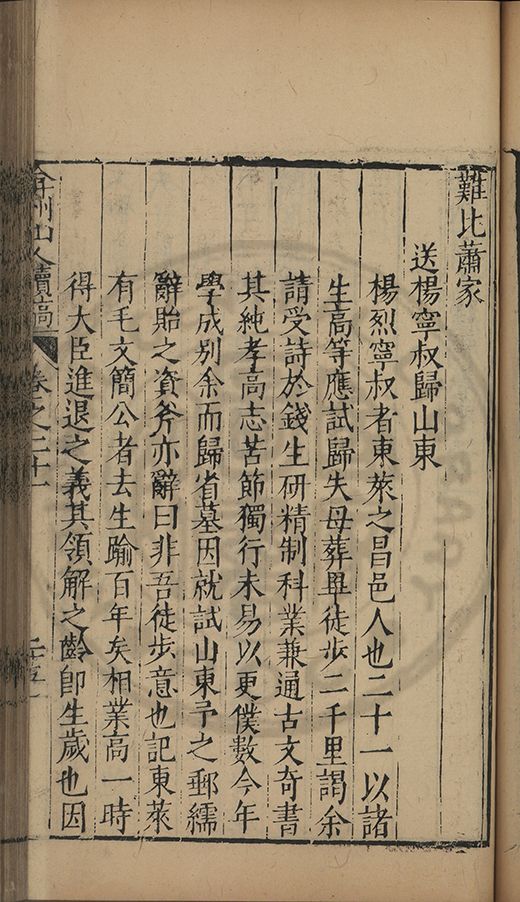 難比蕭家
送楊寧叔歸山東
楊烈寧叔者東萊之昌邑人也二十一以諸
生高等應試歸失母葬畢徒步二千里謁余
請受詩於錢生研精制科業兼通古文奇書
其純孝高志苦節獨行未易以更僕數今年
學成別余而歸省墓因就試山東予之郵繻
辭貽之資斧亦辭曰非吾徒步意也記東萊
有毛文簡公者去生踰百年矣相業高一時
得大臣進退之義其領解之齡卽生歲也因
弇州山人續稿 卷之二十一